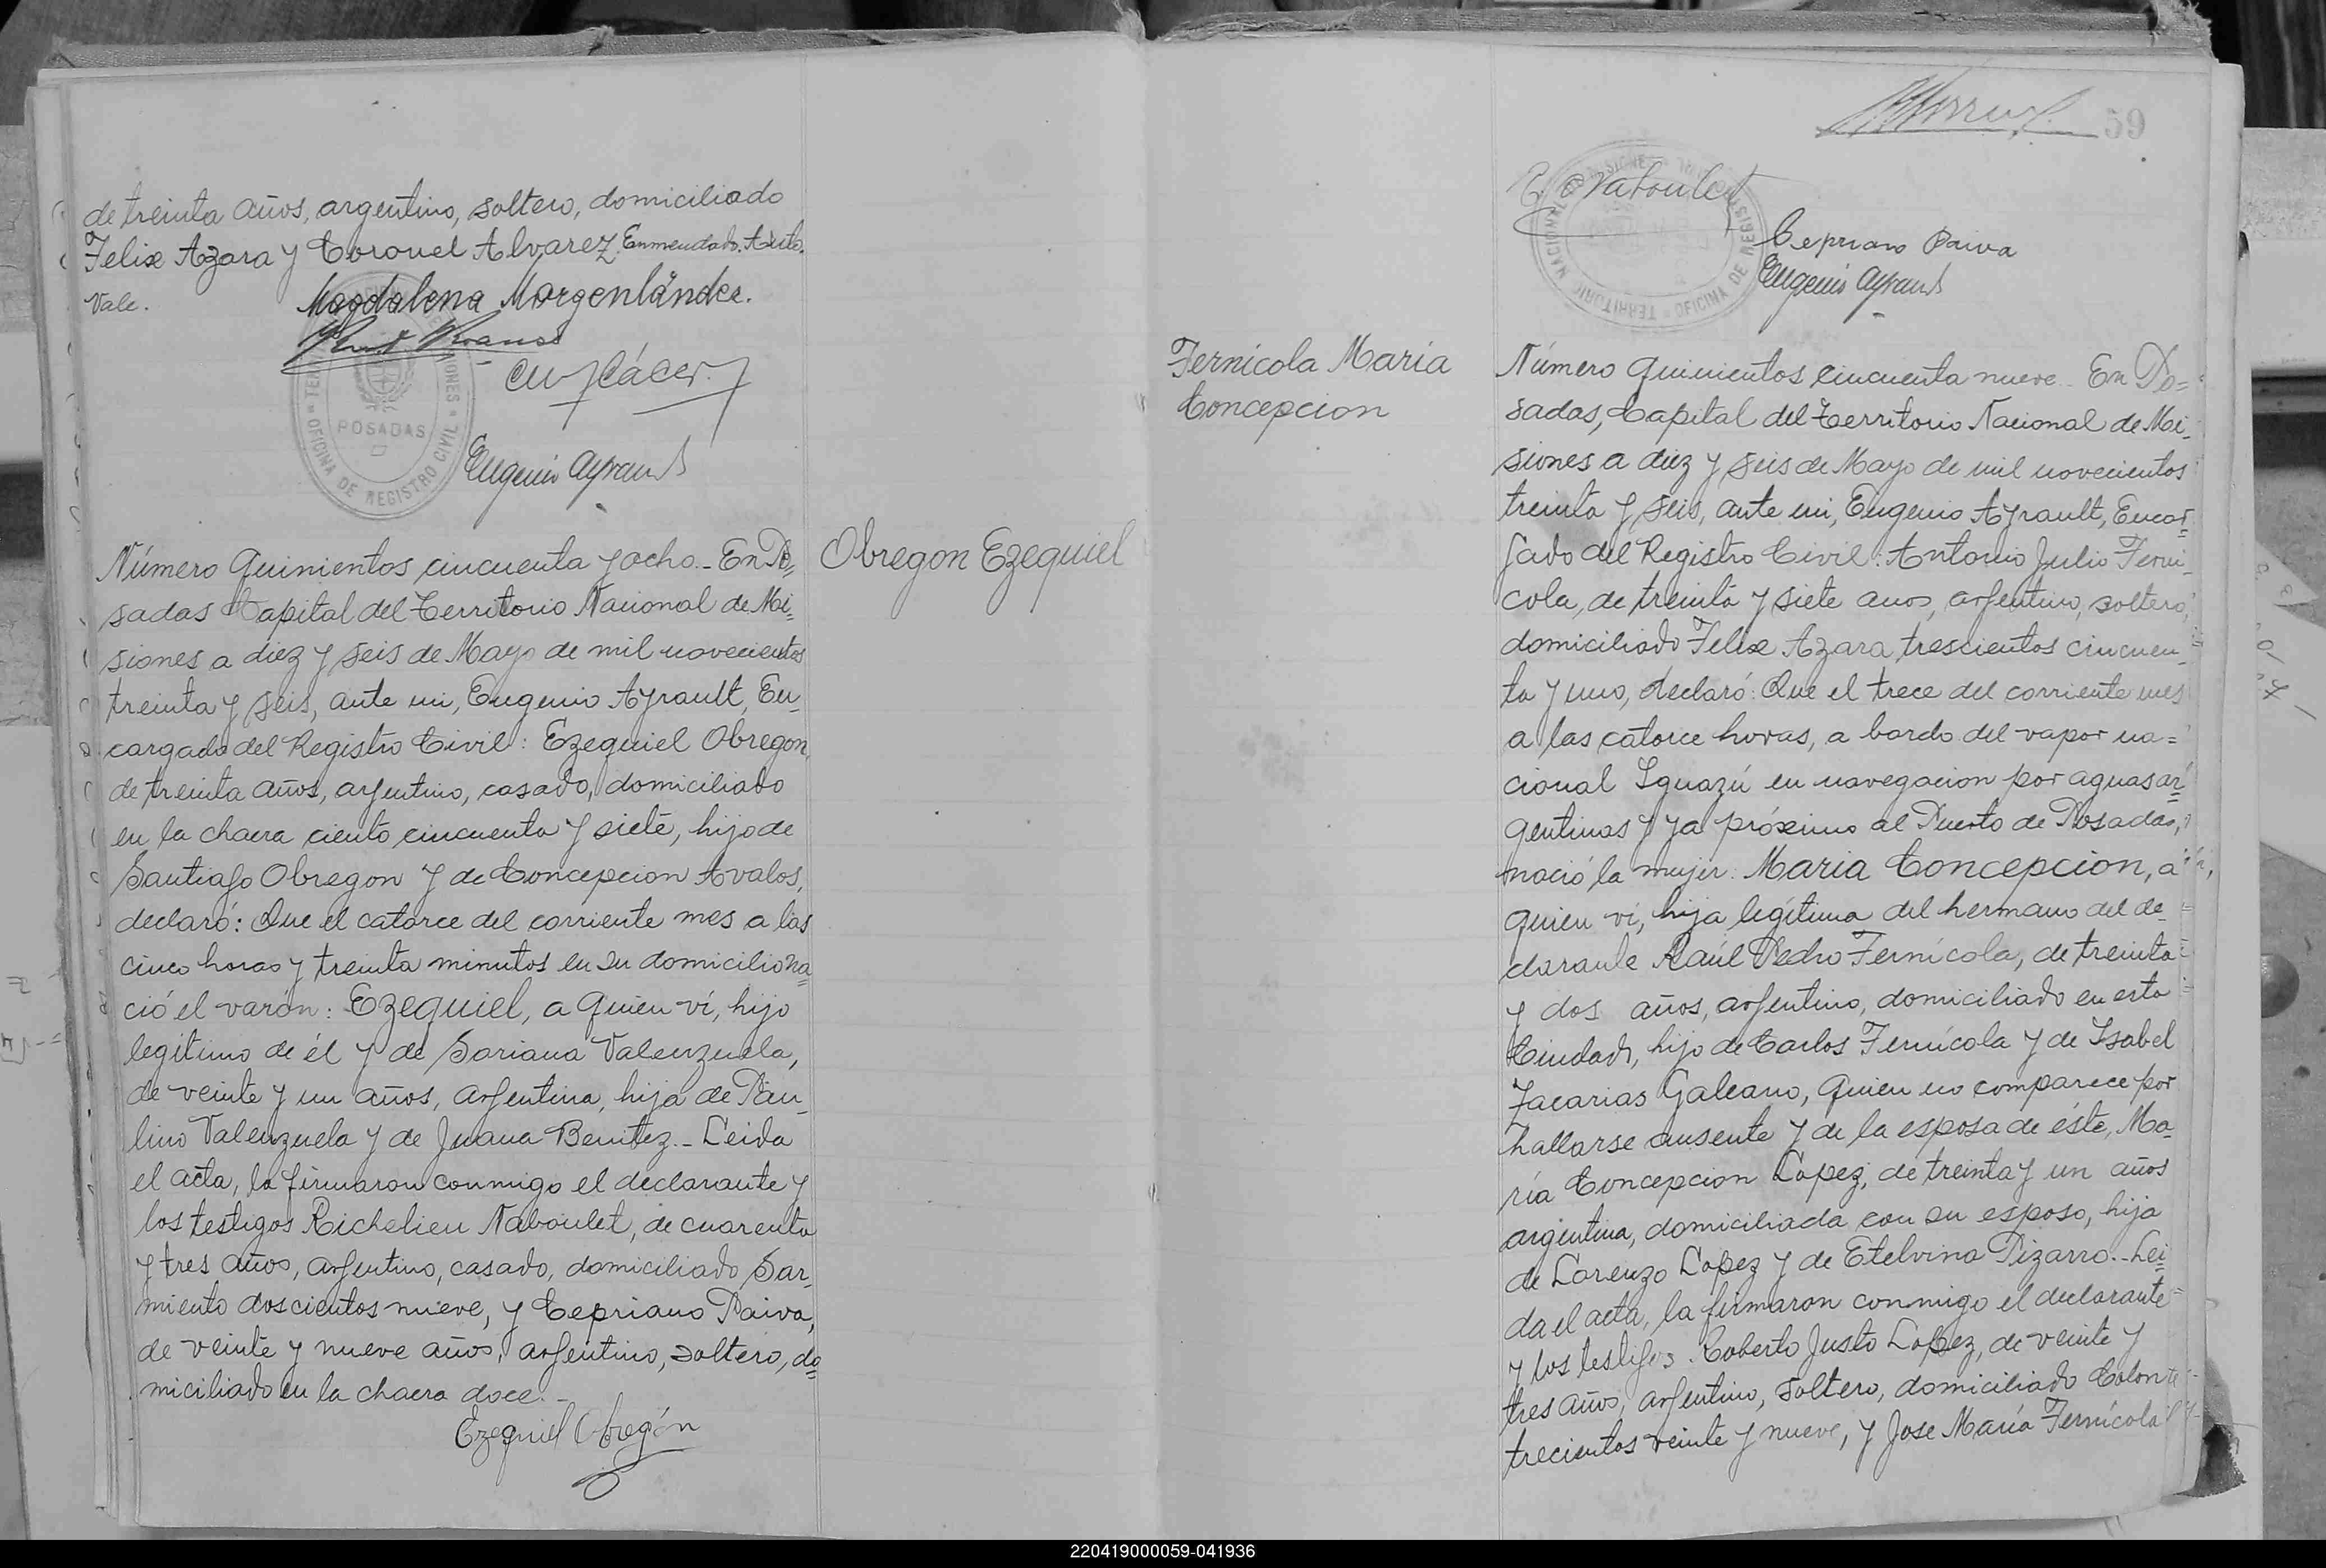 de treinta años, argentino, soltero, domiciliado
Felix Azara y Coronel Alvarez. Enmendado.
Vale.
Magdalena Morgenländer.
POSADAS
OFICINA DE REGISTRO CIVIL
Eugenio Ayrault
Número quinientos cincuenta y ocho.- En Po=
sadas Capital del Territorio Nacional de Mi=
siones a diez y seis de Mayo de mil novecientos
treinta y seis, ante mi, Eugenio Ayrault, En-
cargado del Registro Civil: Ezequiel Obregon,
de treinta años, argentino, casado, domiciliado
en la chacra ciento cincuenta y siete, hijo de
Santiago Obregon y de Concepcion Avalos,
declaró: Que el catorce del corriente mes a las
cinco horas y treinta minutos en su domicilio na=
ció el varón: Ezequiel, a quien ví, hijo
legítimo de él y de Sariana Valenzuela,
de veinte y un años, argentina, hija de Pau-
lino Valenzuela y de Juana Benitez.- Leida
el acta, la firmaron conmigo el declarante y
los testigos Richelieu Naboulet, de cuarenta
y tres años, argentino, casado, domiciliado Sar-
miento doscientos nueve, y Cepriano Paiva,
de veinte y nueve años, argentino, soltero, do=
miciliado en la chacra doce.-
Ezequiel Obregón
Obregon Ezequiel
59
R. Naboulet
TERRITORIO NACIONAL DE MISIONES
OFICINA DE REGISTRO
Cepriano Paiva
Eugenio Ayrault
Fernícola Maria
Concepcion
Número quinientos cincuenta nueve.- En Po=
sadas, Capital del Territorio Nacional de Mi-
siones a diez y seis de Mayo de mil novecientos
treinta y seis, ante mi, Eugenio Ayrault, Encar=
gado del Registro Civil: Antonio Julio Ferni-
cola, de treinta y siete años, argentino, soltero,
domiciliado Felix Azara trescientos cincuen-
ta y uno, declaró: Que el trece del corriente mes
a las catorce horas, a bordo del vapor na=
cional Iguazú en navegacion por aguas ar=
gentinas y ya próximo al Puerto de Posadas,
nació la mujer: Maria Concepcion, a
quien ví, hija legítima del hermano del de-
clarante Raúl Pedro Fernícola, de treinta
y dos años, argentino, domiciliado en esta
Ciudad, hijo de Carlos Fernícola y de Isabel
Zacarias Galeano, quien no comparece por
hallarse ausente y de la esposa de éste, Ma-
ría Concepcion Lopez, de treinta y un años
argentina, domiciliada con su esposo, hija
de Lorenzo Lopez y de Etelvina Pizarro.- Lei=
da el acta, la firmaron conmigo el declarante
y los testigos Roberto Justo Lopez, de veinte y
tres años, argentino, soltero, domiciliado Colon
trecientos veinte y nueve, y Jose María Fernícola
220419000059-041936